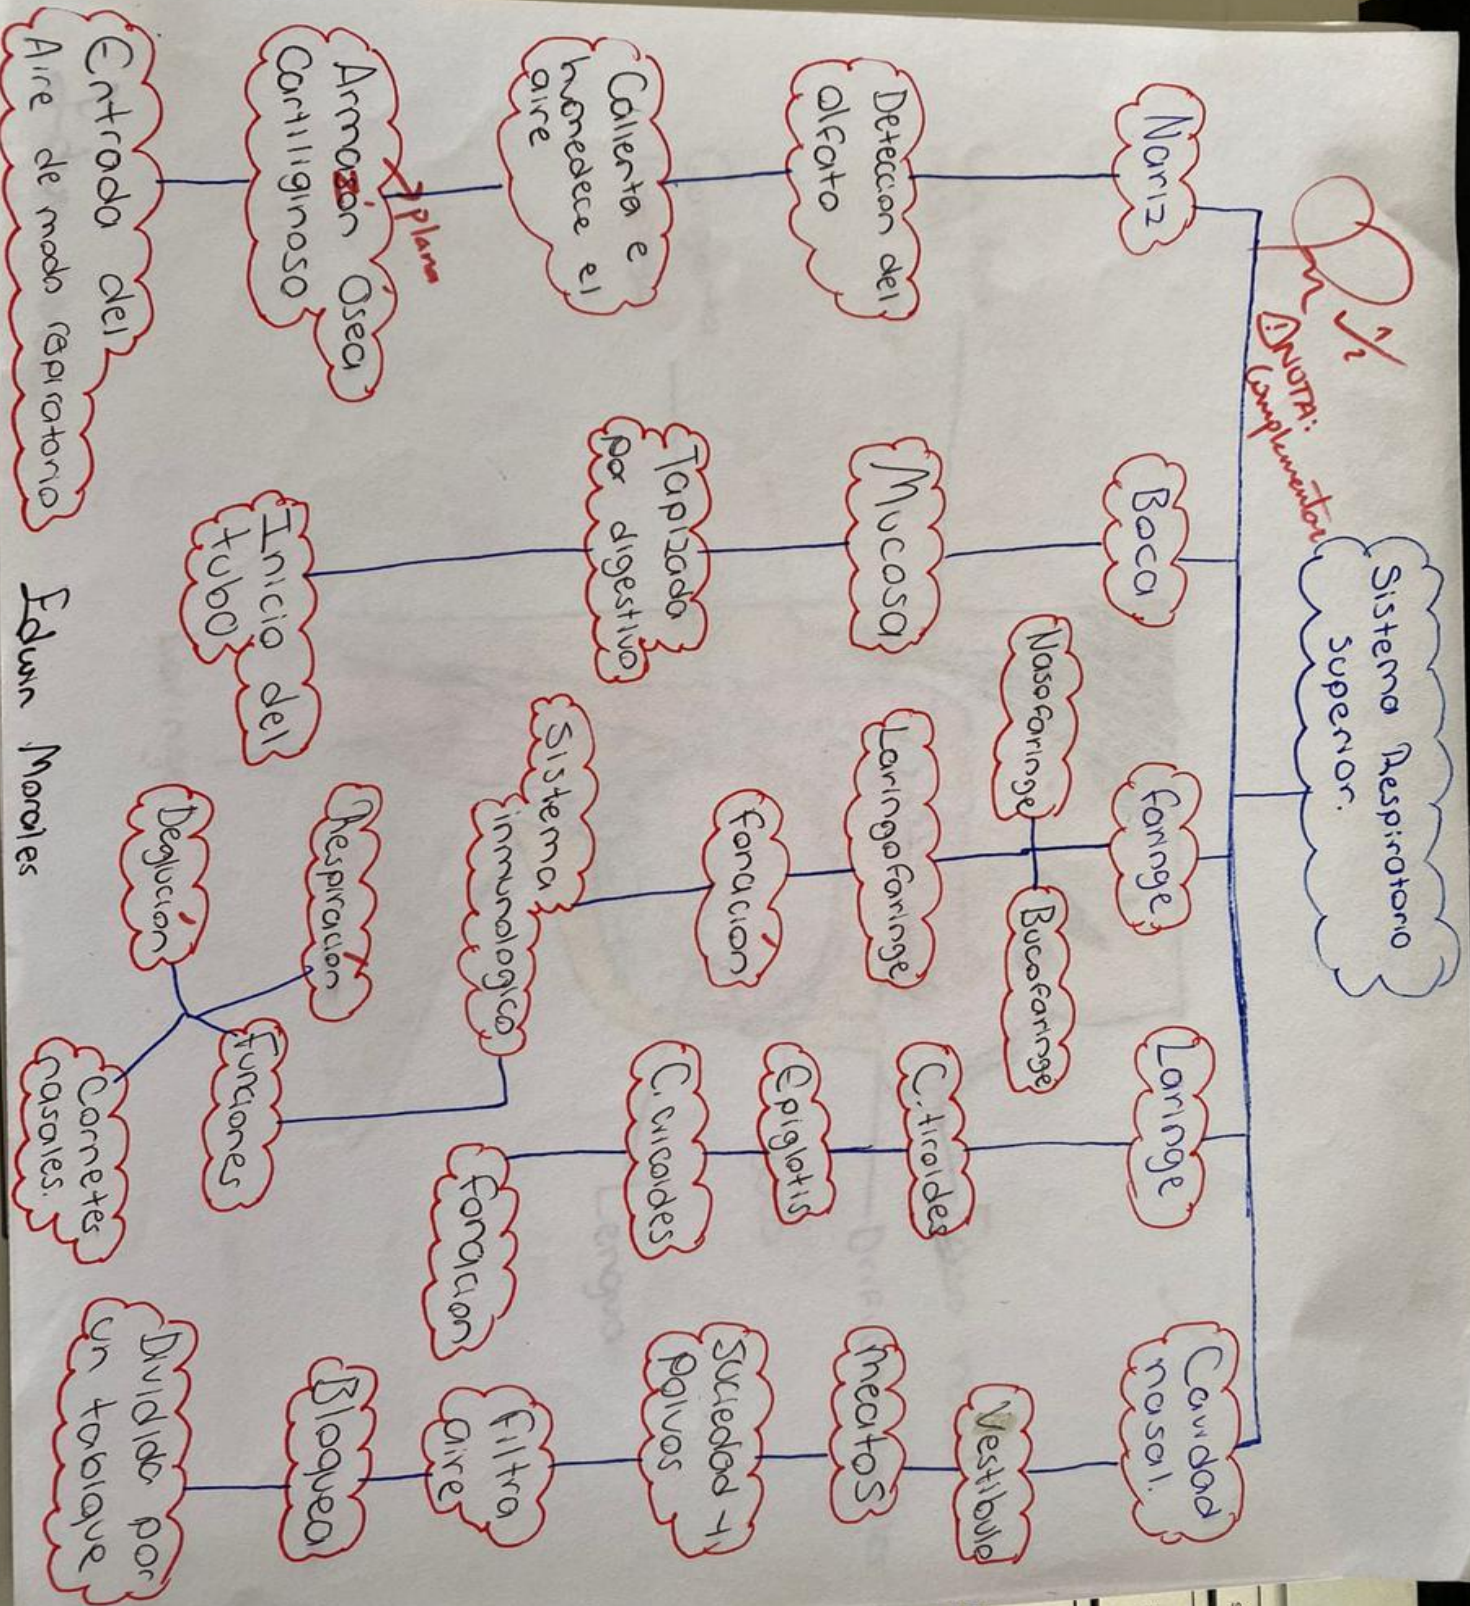 Sistema Respiratorio
superior.
1/2
NOTA:
Complementar
Nariz
Detección del
olfato
Calienta e
humedece el
aire
plana
Armazón Ósea
Cartiliginoso
Entrada del
Aire de modo respiratorio
Boca
Mucosa
Tapizada
por digestivo
Inicio del
tubo
faringe
Nasofaringe
Bucofaringe
Laringofaringe
fonación
Sistema
inmunologico
Funciones
Respiración
Deglución
Cornetes
nasales.
Laringe
C. tiroides
Epiglotis
C. cricoides
fonacion
Cavidad
nasal.
Vestibulo
meatos
Suciedad y
polvos
filtra
aire
Bloquea
Dividida por
un tabique
Edwin Morales